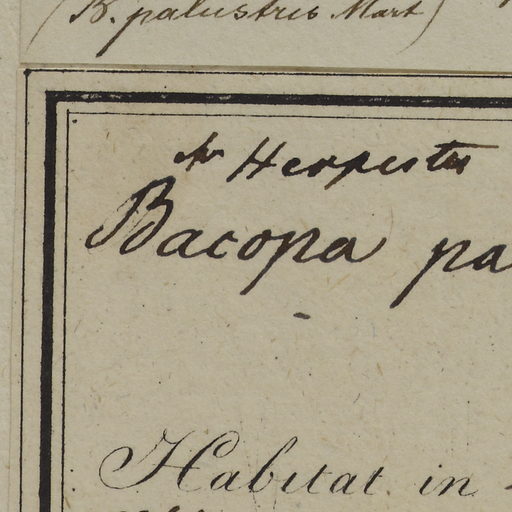 (B. palustris Mart)
Herpestes
Bacopa pa
Habitat in